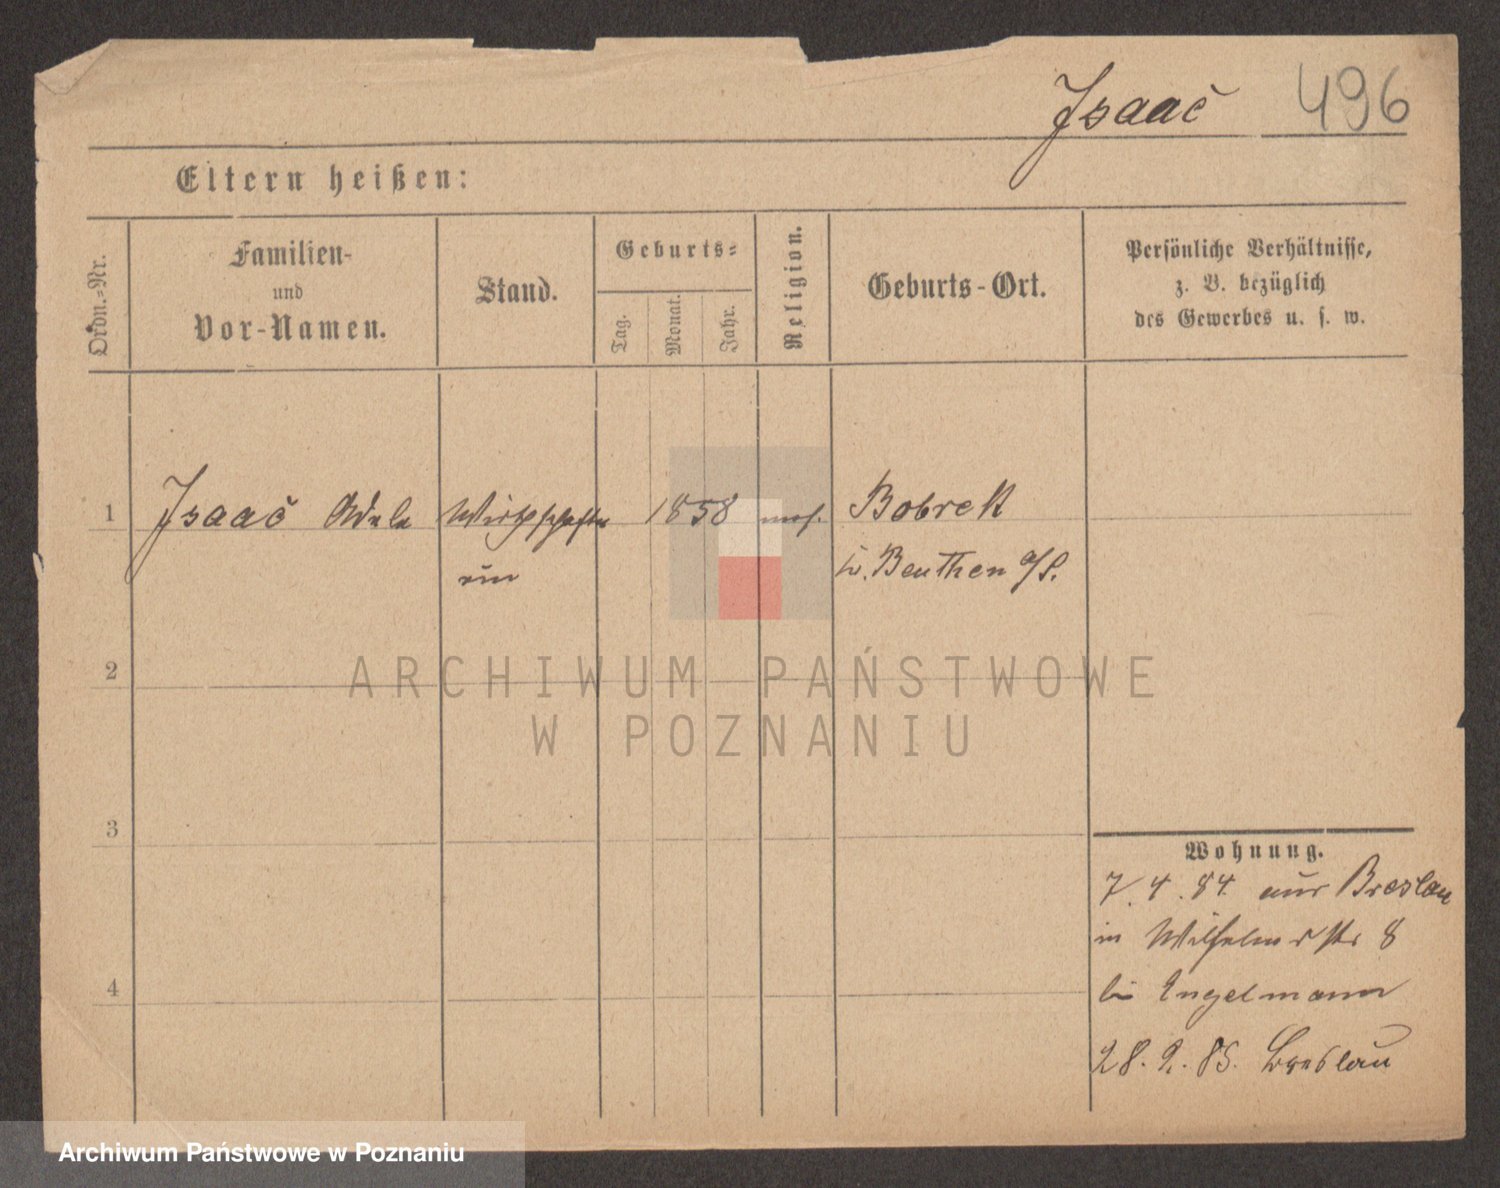 Isaac 496
Eltern heißen:
Ordn.-Nr.
Familien-
und
Vor-Namen.
Stand.
Geburts-
Tag.
Monat.
Jahr.
Religion.
Geburts-Ort.
Persönliche Verhältnisse,
z. B. bezüglich
des Gewerbes u. s. w.
1 Isaac Adele Wirthschafte 1858 mos. Bobrek
rin b. Beuthen O/S.
2
3
4
Wohnung.
7.4.84 aus Breslau
in Wilhelmsstr 8
bei Engelmann
28.2.85. Breslau
ARCHIWUM PAŃSTWOWE
W POZNANIU
Archiwum Państwowe w Poznaniu